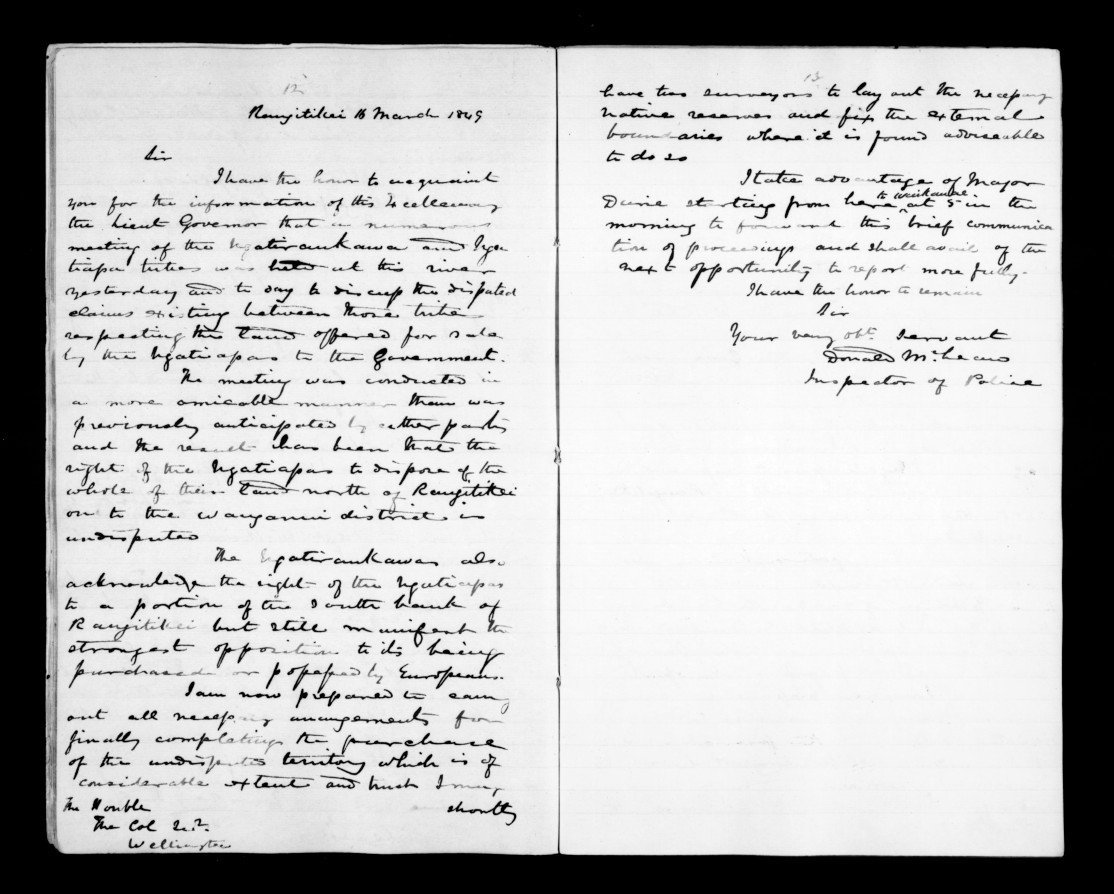 12
Rangitikei 16 March 1849
Sir
I have the honor to acquaint
you for the information of His Excellency
the Lieut Governor that a numerous
meeting of the Ngatiraukawa and Nga
tiapa tribes was held at this river
yesterday and to day to discuss the disputed
claims existing between those tribes
respecting the land offered for sale
by the Ngatiapas to the Government.
The meeting was conducted in
a more amicable manner than was
previously anticipated by either party
and the result has been that the
right of the Ngatiapas to dispose of the
whole of their land north of Rangitikei
on to the Wanganui district is
undisputed
The Ngatiraukawas also
acknowledge the right of the Ngatiapas
to a portion of the south bank of
Rangitikei but still manifest the
strongest opposition to its being
purchased or possessed by Europeans.
I am now prepared to carry
out all necessary arrangements for
finally completing the purchase
of the undisputed territory which is of
considerable extent and trust I may
The Honble shortly
The Col Secr.
Wellington
13
have two surveyors to lay out the necessary
native reserves and fix the external
boundaries where it is found adviseable
to do so
I take advantage of Major
Durie starting from here to Waikanae at 5 in the
morning to forward this brief communica
tion of proceedings and shall avail of the
next opportunity to report more fully.
I have the honor to remain
Sir
Your very obt. Servant
Donald McLean
Inspector of Police